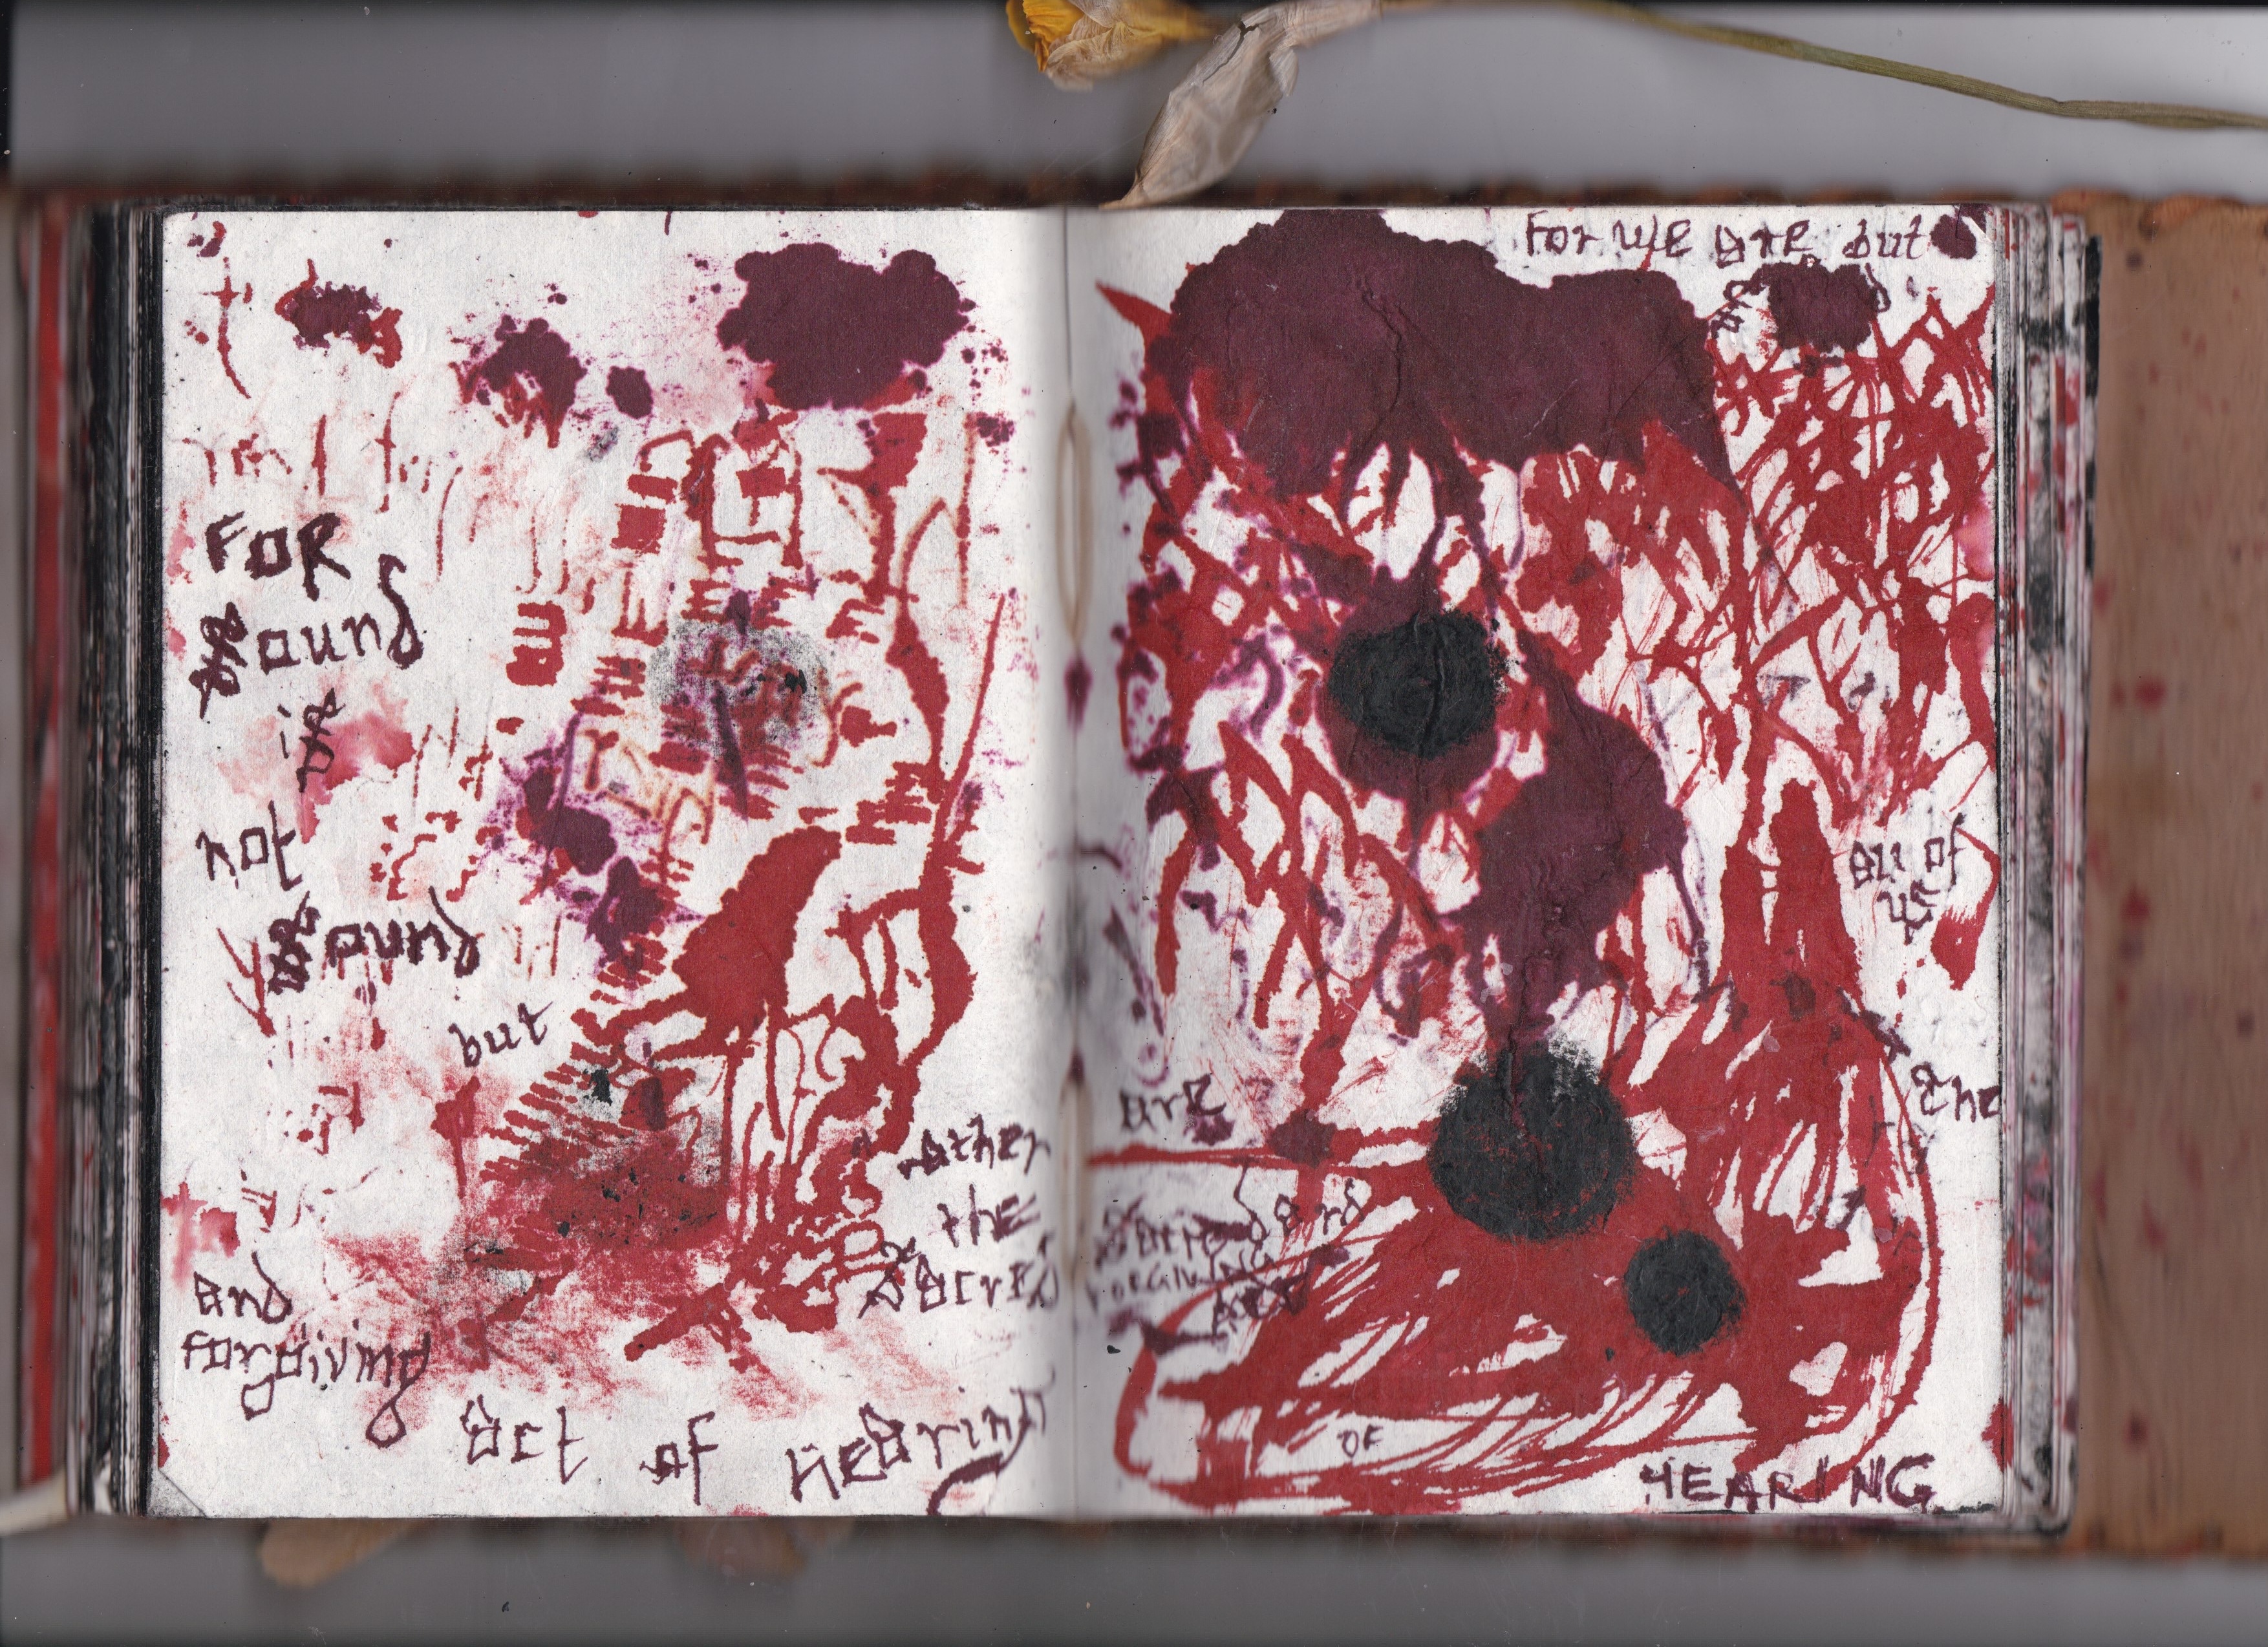 FOR
Sound
is
not
Sound
but
rather
the
Sacred
and
forgiving
act of HEaring
For WE are but
all of
us
are
the
Sacred and
FORGIVING
OF
HEARING